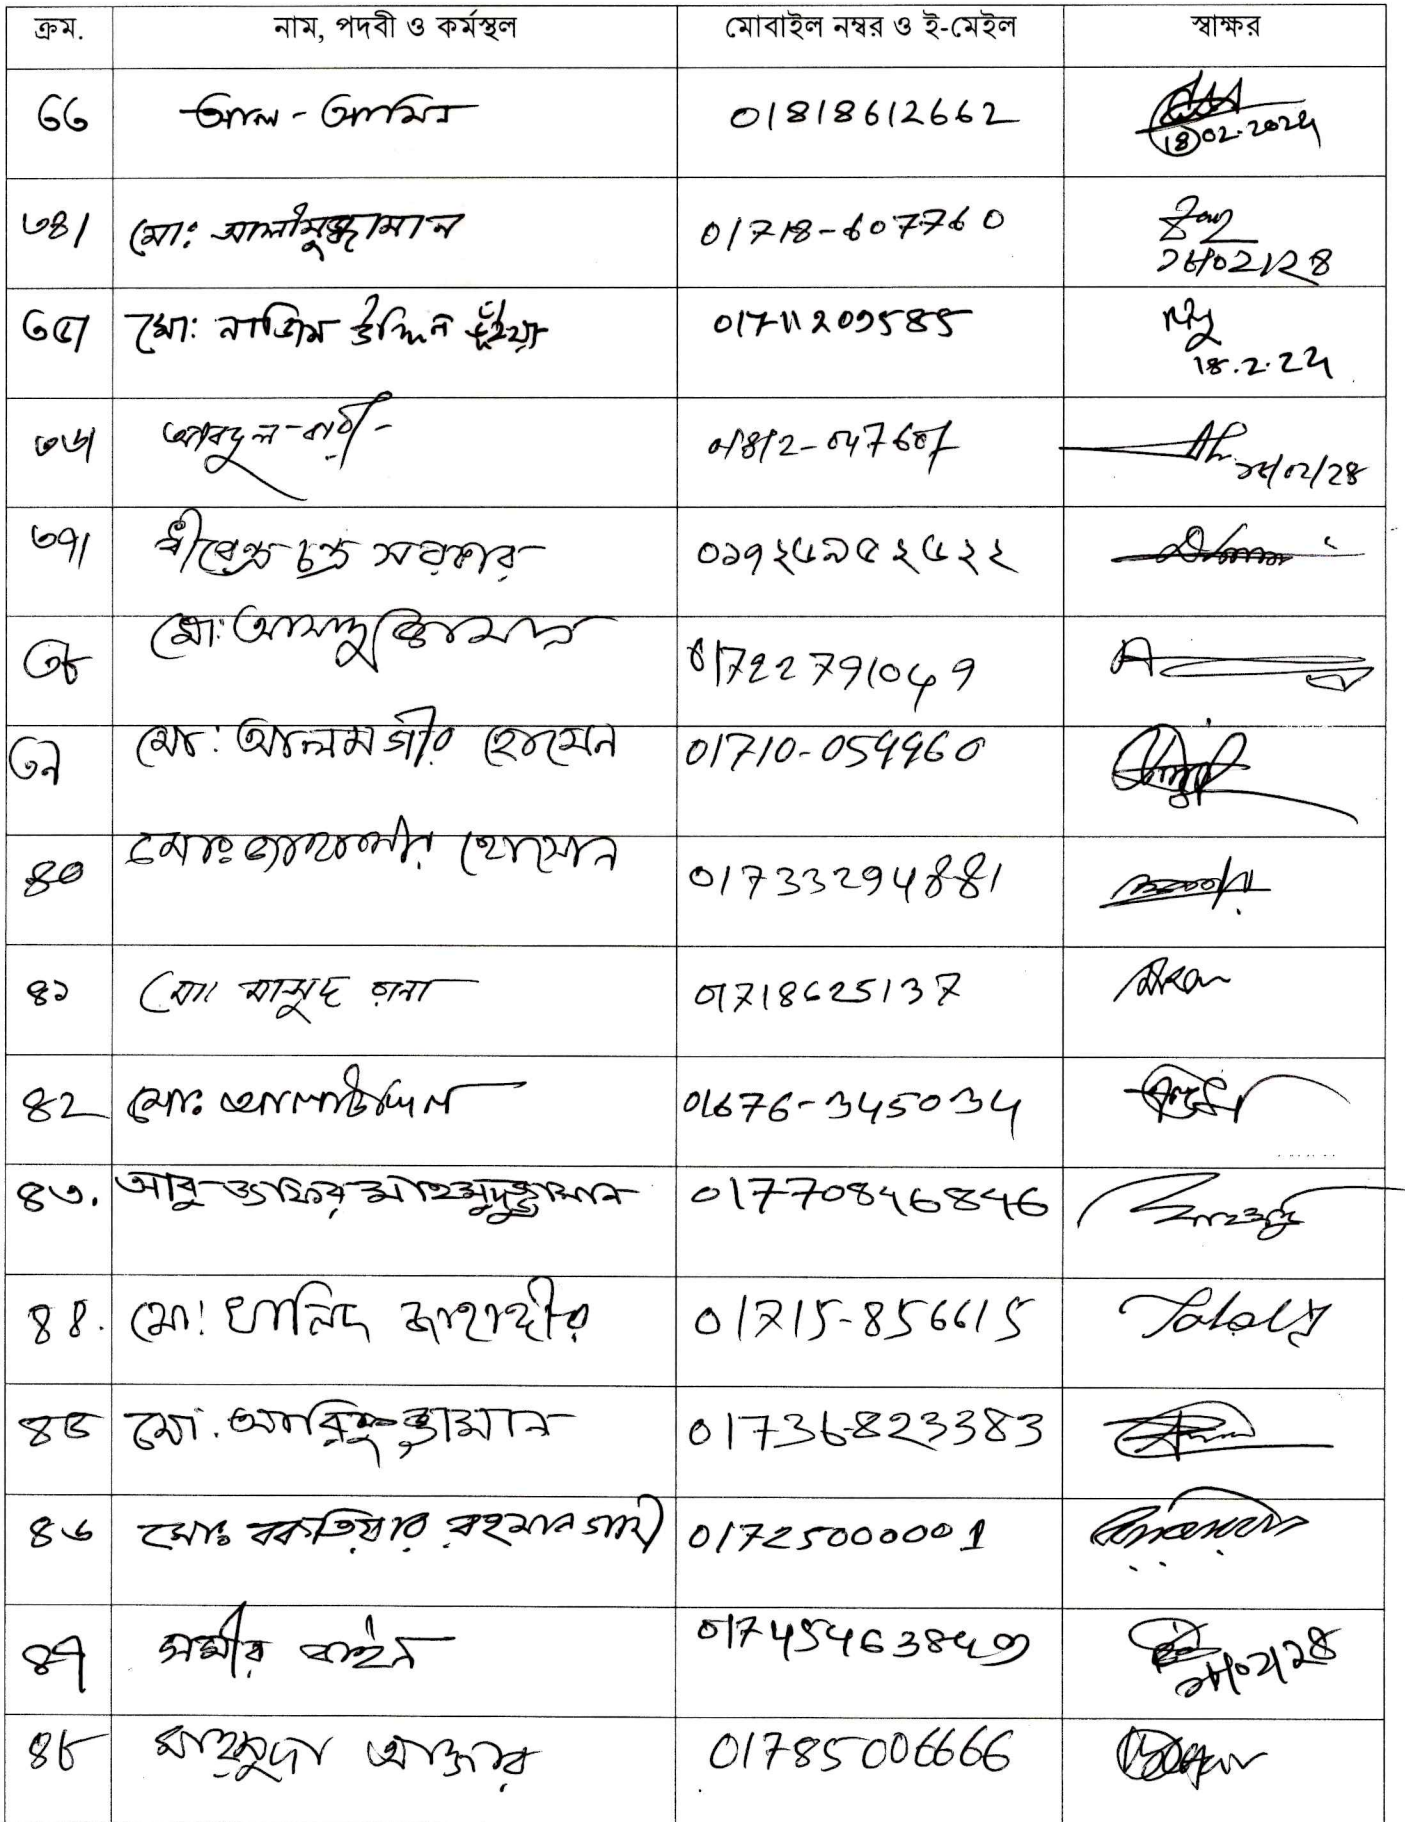 ক্রম. নাম, পদবী ও কর্মস্থল মোবাইল নম্বর ও ই-মেইল স্বাক্ষর
৩৩ আল-আমিন 01818612662 18 02.2024
৩৪। মো: আলীমুজ্জামান 01718-607760 ১৮/০২/২৪
৩৫। মো: নাজিম উদ্দিন ভূঁইয়া 01711209585 18.2.24
৩৬। আবদুল বারী 01812-047607 ১৮/০২/২৪
৩৭। ধীরেন্দ্র চন্দ্র সরকার ০১৭২৫৯৫২৫২২
৩৮ মো: আসাদুজ্জামান 01722791049
৩৯ মো: আলমগীর হোসেন 01710-059960
৪০ মোঃ জাহাঙ্গীর হোসেন 01733294881
৪১ মো। মাসুদ রানা 01718625137
৪২ মো: আলাউদ্দিন 01676-345034
৪৩. আবু জাফর মাহমুদুজ্জামান 01770846846
৪৪. মো: খালিদ জাহাঙ্গীর 01715-856615
৪৫ মো. আরিফুজ্জামান 01736823383
৪৬ মোঃ বকতিয়ার রহমান গাজী 01725000001
৪৭ সমীর বাইন ১৮/০২/২৪
৪৮ মাহমুদা আক্তার 01785006666